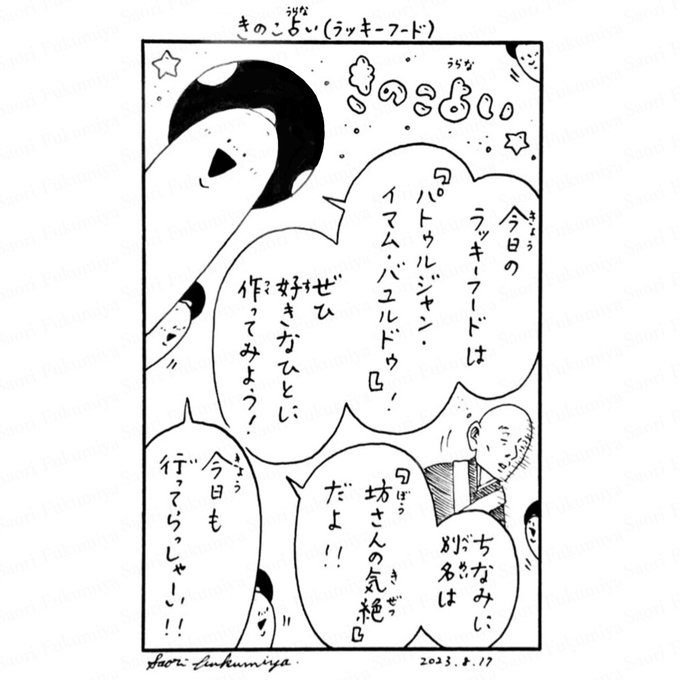 きのこ占い(ラッキーフード)
きのこ占い
今日の
ラッキーフードは
『パトゥルジャン・
イマム・バユルドゥ』!
ぜひ
好きなひとに
作ってみよう!
ちなみに
別名は
『坊さんの気絶』
だよ!!
今日も
行ってらっしゃーい!!
Saori Fukumiya.
2023.8.17